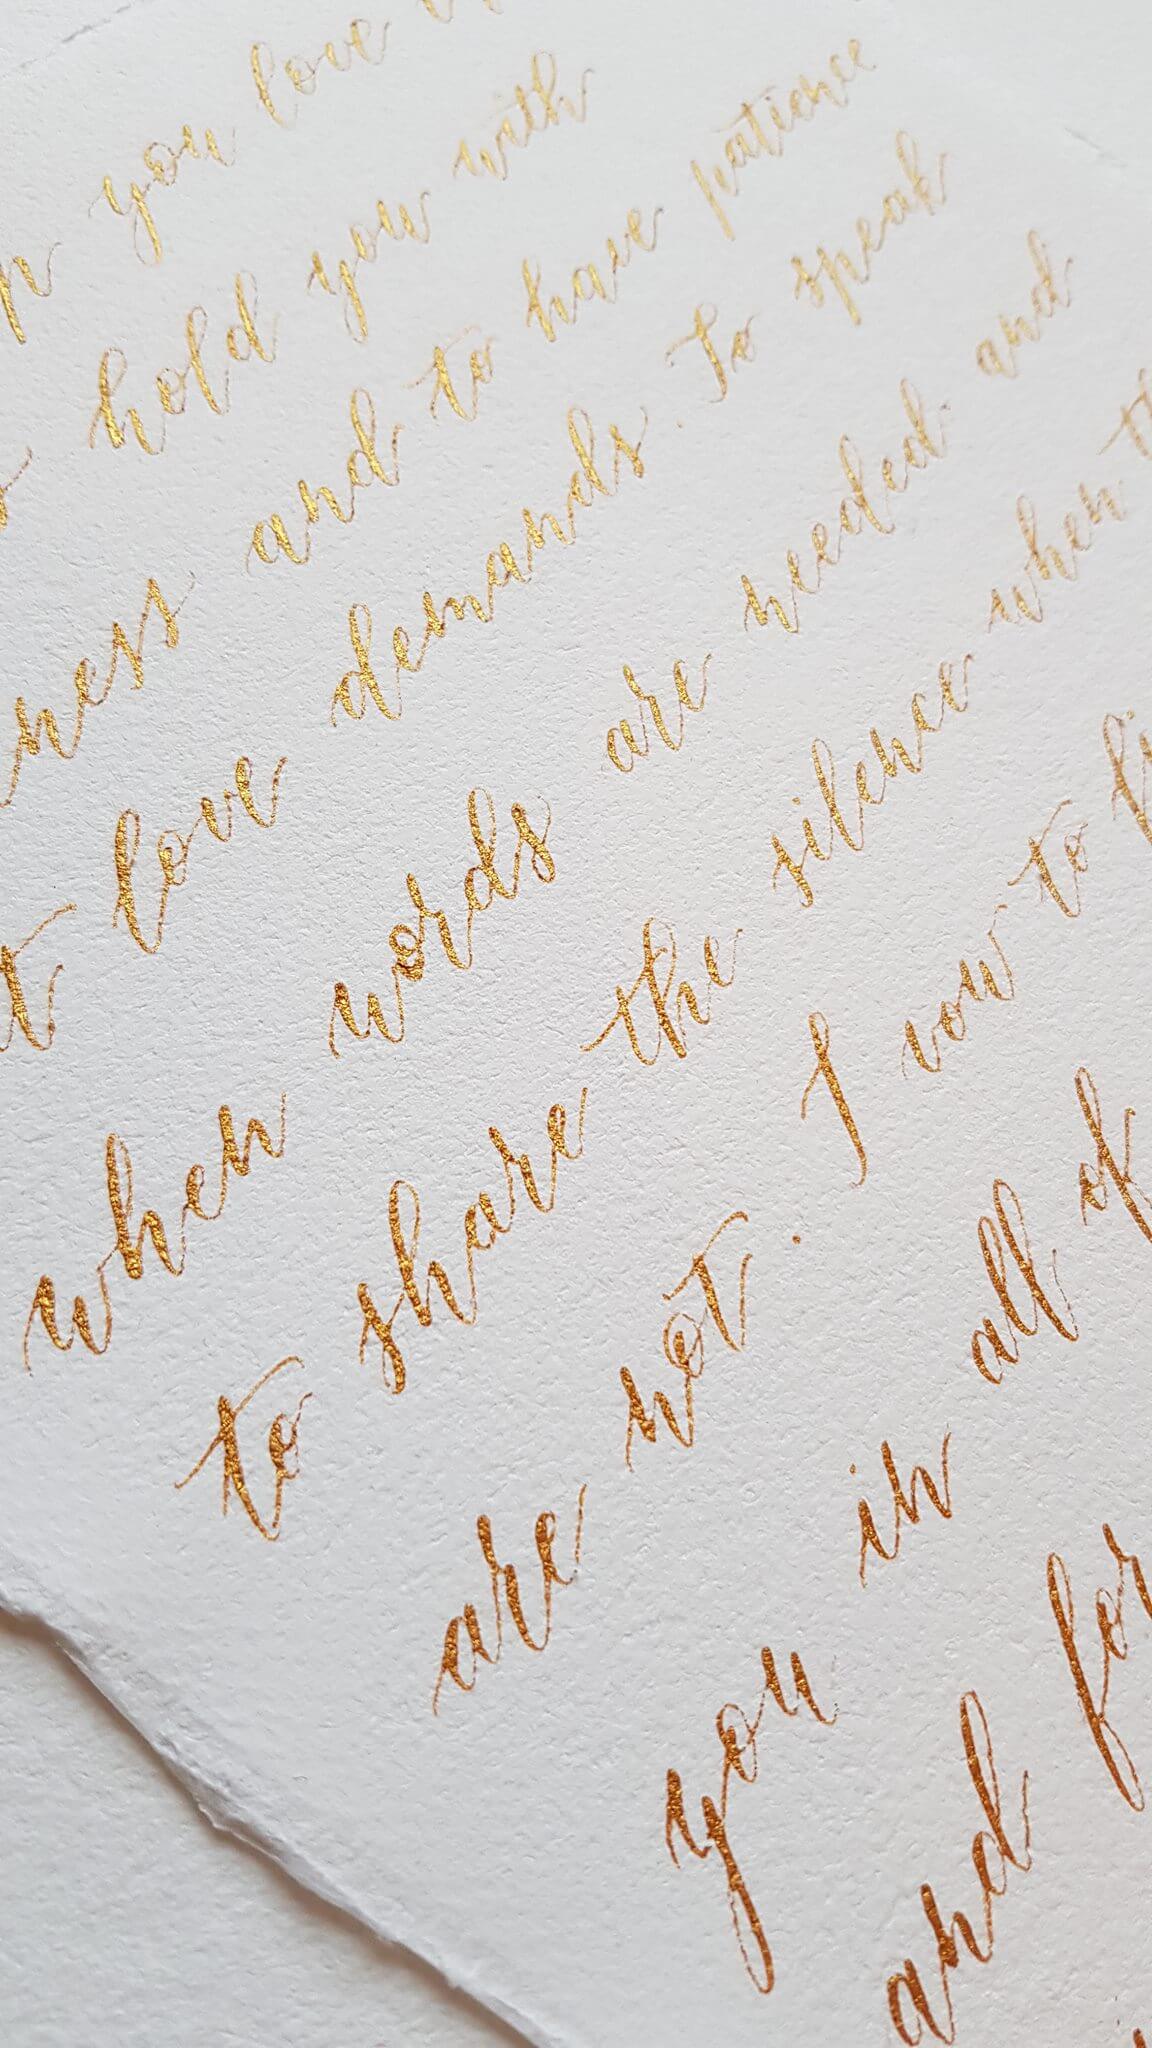 you love
hold you with
ness and to have patience
t love demands. To speak
when words are needed. and
to share the silence when
are not. I vow to
you in all of
and for